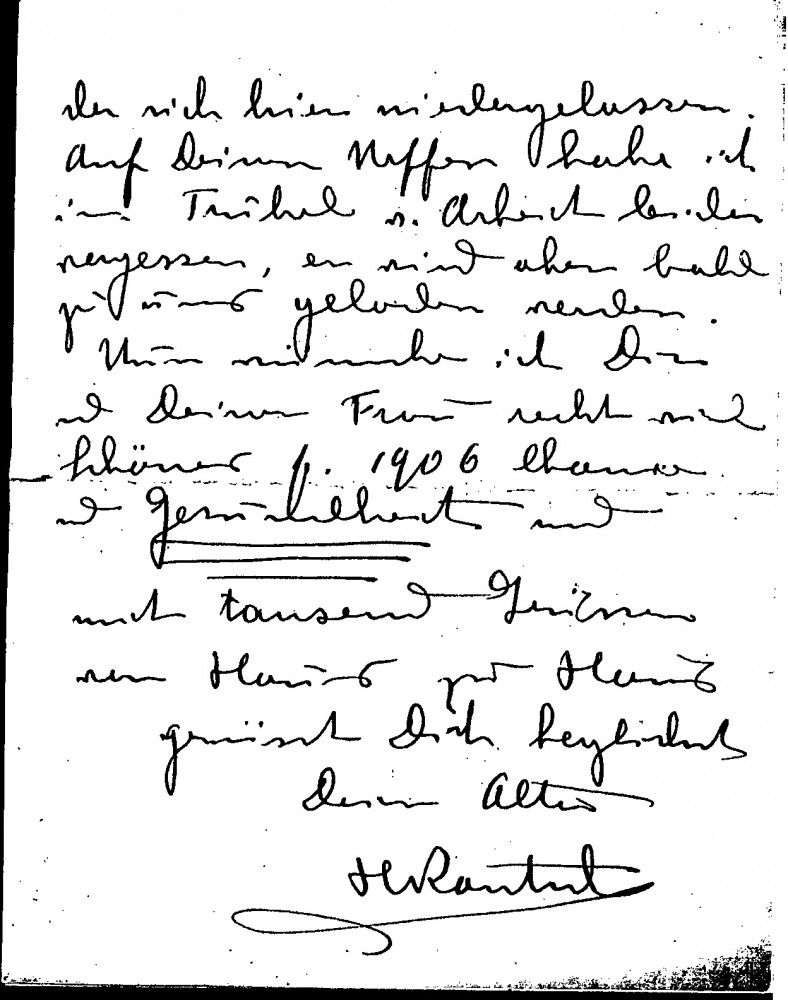 der sich hier niedergelassen.
Auf Deinen Neffen habe ich
im Trubel u. Arbeit leider
vergessen, er wird aber bald
zu uns geladen werden.
Nun wünsche ich Dir
und Deiner Frau recht viel
Schönes f. 1906
und Gesundheit und
mit tausend Grüssen
von Haus zu Haus
grüsst Dich herzlichst
Dein Alter